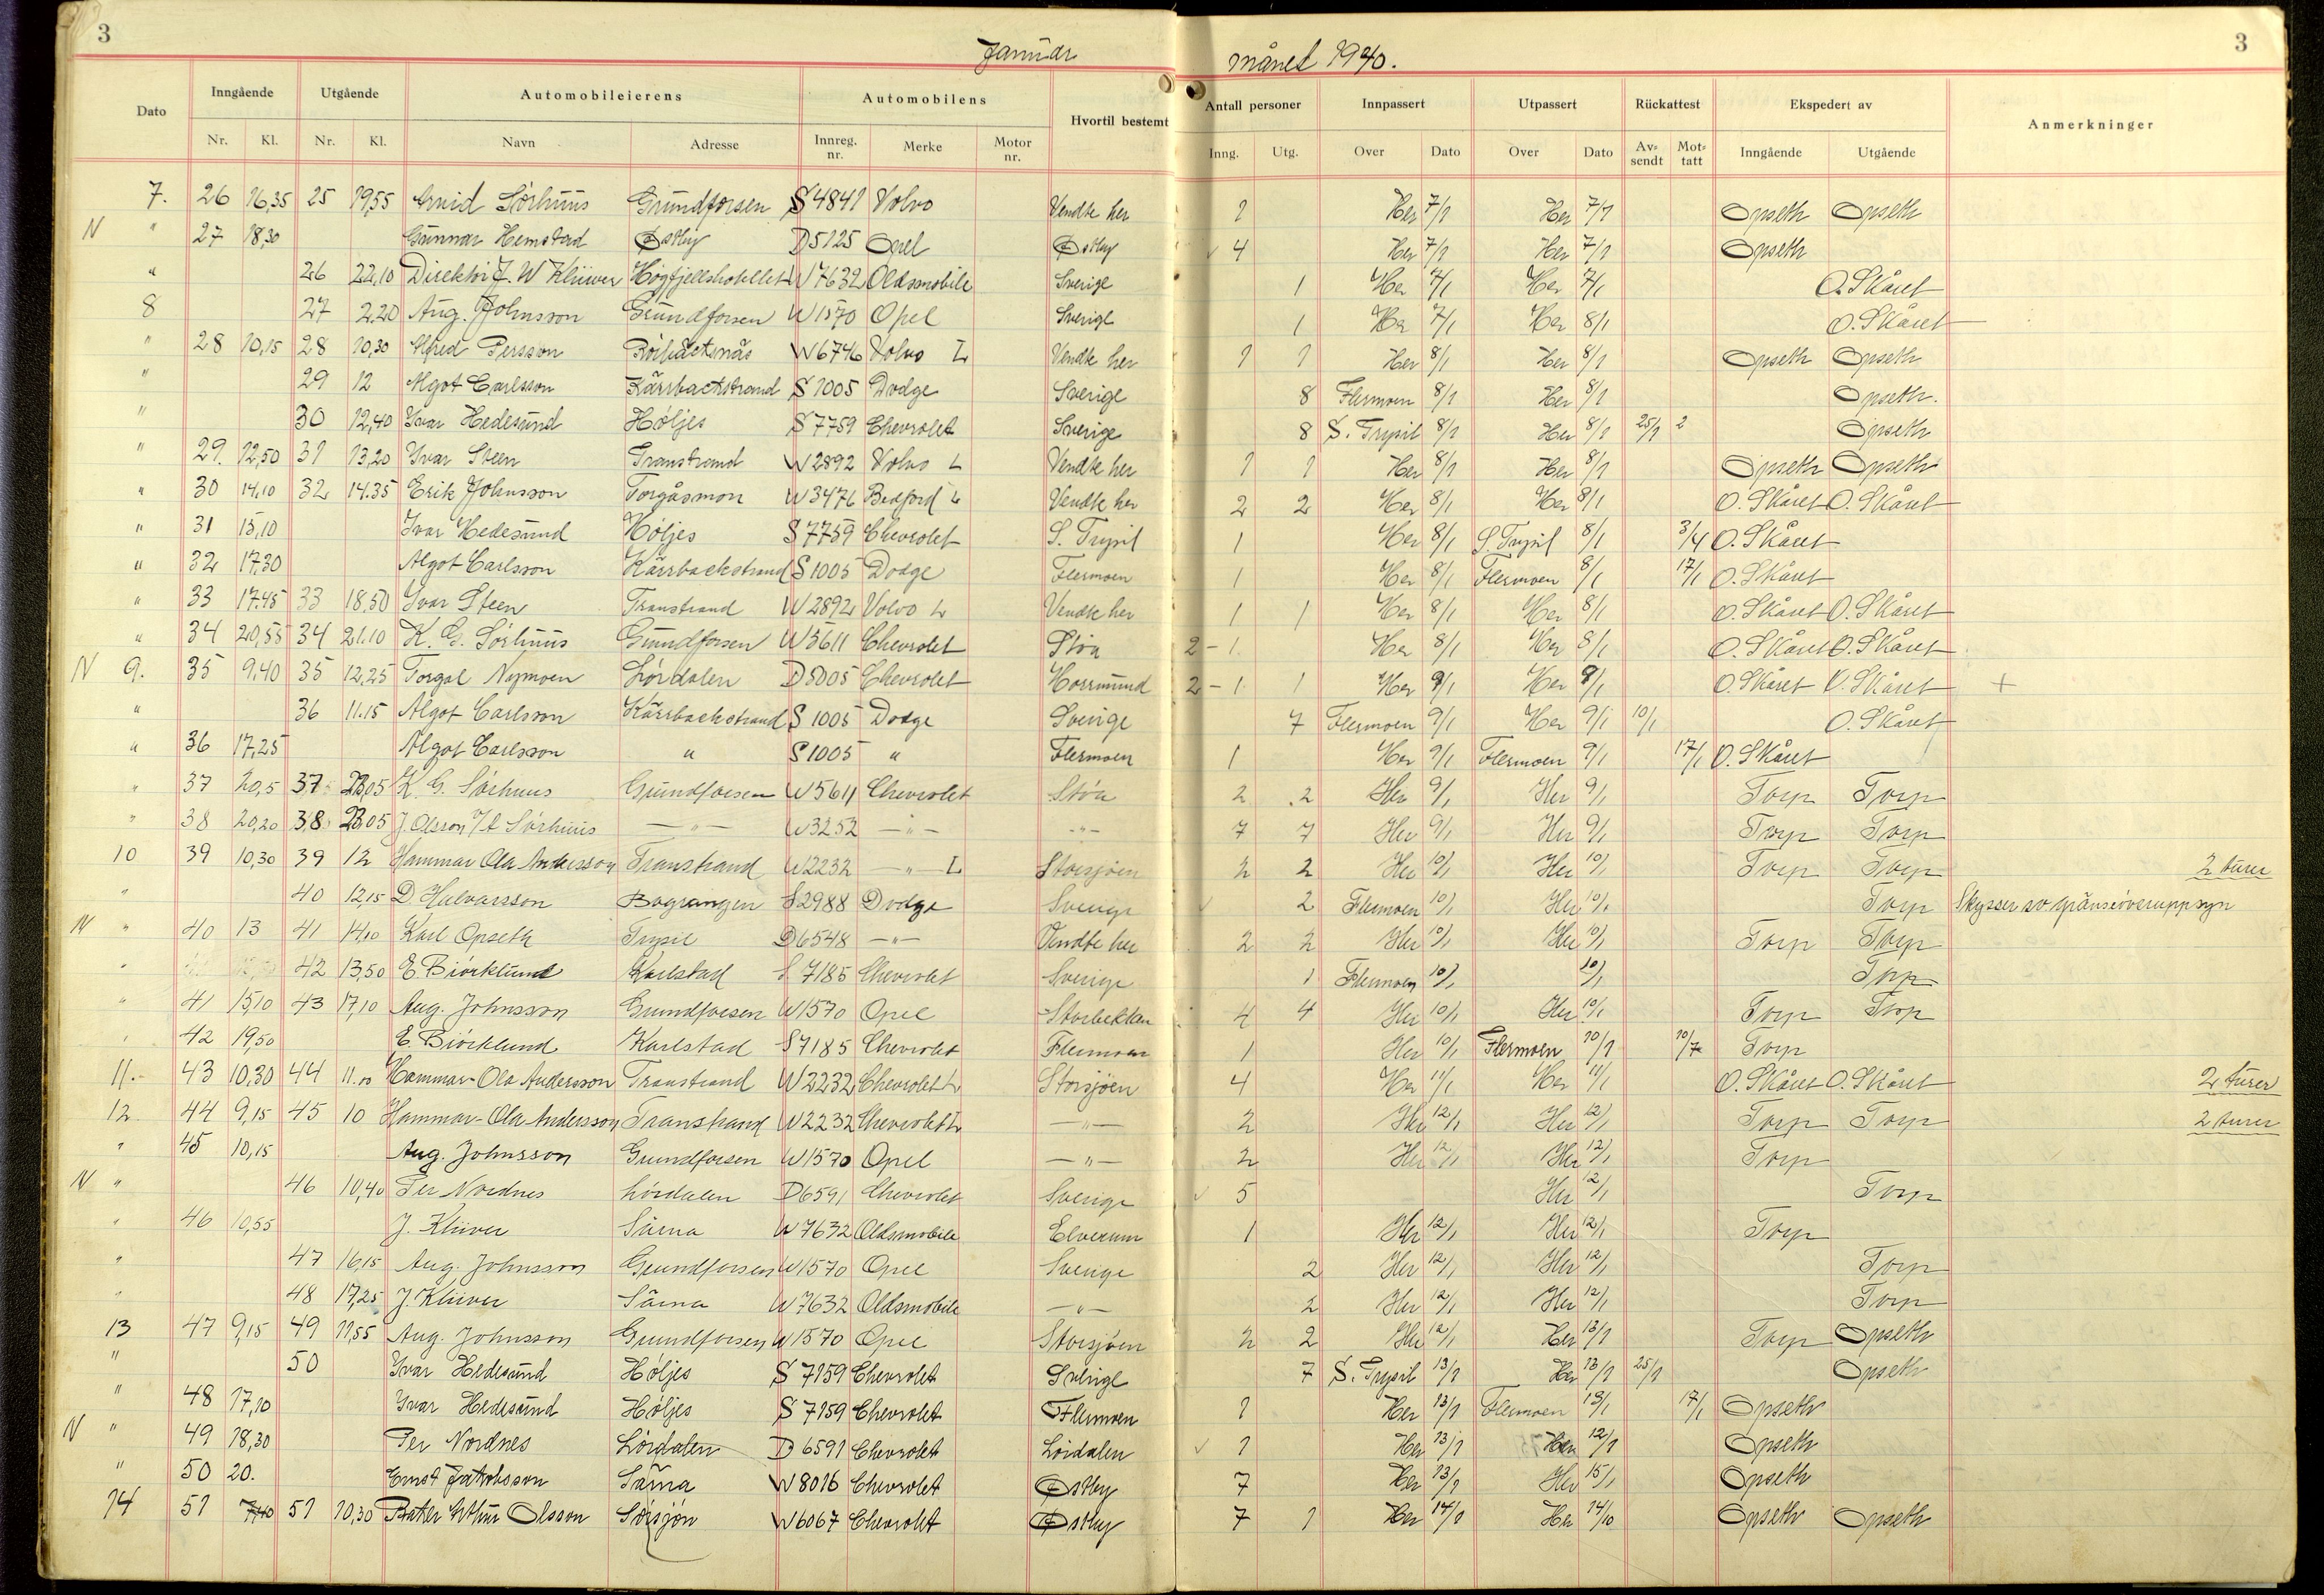 3
3
Januar månet 1940.
Dato Inngående Utgående Automobileierens Automobilens Hvortil bestemt Antall personer Innpassert Utpassert Rückattest Ekspedert av Anmerkninger
Nr. Kl. Nr. Kl. Navn Adresse Innreg. nr. Merke Motor nr. Inng. Utg. Over Dato Over Dato Av-sendt Mot-tatt Inngående Utgående
7. 26 16,35 25 19,55 Arvid Sörhuus Grundforsen S 4841 Volvo Vendte her 1 Her 7/1 Her 7/1 Opseth Opseth
N " 27 18,30 Gunnar Hemstad Østby D 5125 Opel Østby √ 4 Her 7/1 Her 7/1 Opseth
" 26 22,10 Direktör J. W Klüwer Högfjellshotellet W 7632 Oldsmobile Sverige 1 Her 7/1 Her 7/1 O. Skåret
8 27 2.20 Aug. Johnsson Grundforsen W 1570 Opel Sverige 1 Her 7/1 Her 8/1 O. Skåret
" 28 10,15 28 10,30 Alfred Persson Röibäcksnäs W 6746 Volvo L Vendte her 1 1 Her 8/1 Her 8/1 Opseth Opseth
" 29 12 Algot Carlsson Kärrbackstrand S 1005 Dodge Sverige 8 Flermoen 8/1 Her 8/1 Opseth.
" 30 12,40 Ivar Hedesund Höljes S 7759 Chevrolet Sverige 8 S. Trysil 8/1 Her 8/1 25/1 2 Opseth
" 29. 12,50 31 13,20 Ivar Steen Transtrand W 2892 Volvo L Vendte her 1 1 Her 8/1 Her 8/1 Opseth Opseth
" 30 14,10 32 14.35 Erik Johnsson Torgåsmon W 3476 Bedford L Vendte her 2 2 Her 8/1 Her 8/1 O. Skåret O. Skåret
" 31 15,10 Ivar Hedesund Höljes S 7759 Chevrolet S. Trysil 1 Her 8/1 S. Trysil 8/1 3/4 O. Skåret
" 32 17,30 Algot Carlsson Kärrbackstrand S 1005 Dodge Flermoen 1 Her 8/1 Flermoen 8/1 17/1 O. Skåret
" 33 17.45 33 18,50 Ivar Steen Transtrand W 2892 Volvo L Vendte her 1 1 Her 8/1 Her 8/1 O. Skåret O. Skåret
" 34 20,55 34 21.10 K. G. Sörhuus Grundforsen W 5611 Chevrolet Stöa 2-1. Her 8/1 Her 8/1 O. Skåret O. Skåret
N 9. 35 9,40 35 12,25 Torgal Nymoen Lördalen D 5005 Chevrolet Horrmund 2-1 1 Her 9/1 Her 9/1 O. Skåret O. Skåret +
" 36 11.15 Algot Carlsson Kärrbackstrand S 1005 Dodge Sverige 7 Flermoen 9/1 Her 9/1 10/1 O. Skåret
" 36 17,25 Algot Carlsson " S 1005 " Flermoen 1 Her 9/1 Flermoen 9/1 17/1 O. Skåret
" 37 20,5 37 23,05 K. G. Sörhuus Grundforsen W 5611 Chevrolet Stöa 2 2 Her 9/1 Her 9/1 Torp Torp
" 38 20,20 38 23,05 J. Olsson Sörhuus —"— W 3252 —"— -"- 7 7 Her 9/1 Her 9/1 Torp Torp
10 39 10,30 39 12 Hammar Ola Andersson Transtrand W 2232 —"— L Storsjöen 2 2 Her 10/1 Her 10/1 Torp Torp 2 turer
" 40 12,15 D Halvarsson Bograngen S 2988 Dodge Sverige √ 2 Flermoen 10/1 Her 10/1 Torp Skysser sv gränseöveruppsyn
N " 40 13 41 14,10 Karl Opseth Trysil D 6548 —"— Vendte her 2 2 Her 10/1 Her 10/1 Torp Torp
" 42 13,50 E Björklund Karlstad S 7185 Chevrolet Sverige 1 Flermoen 10/1 10/1 Torp
" 41 15,10 43 17,10 Aug. Johnsson Grundforsen W 1570 Opel Storbekken 4 4 Her 10/1 Her 10/1 Torp Torp
" 42 19,50 E. Björklund Karlstad S 7185 Chevrolet Flermoen 1 Her 10/1 Flermoen 10/1 Torp
11.- 43 10,30 44 11.10 Hammar-Ola Andersson Transtrand W 2232 Chevrolet L Storsjöen 4 Her 11/1 Her 11/1 O. Skåret O. Skåret 2 turer
12 44 9,15 45 10 Hammar-Ola Andersson Transtrand W 2232 Chevrolet L —"— 2 Her 12/1 Her 12/1 Torp Torp 2 turer
" 45 10,15 Aug. Johnsson Grundforsen W 1570 Opel —"— 2 Her 12/1 Her 12/1 Torp
N " 46 10,40 Per Nordnes Lördalen D 6591 Chevrolet Sverige √ 5 Her 12/1 Torp
" 46 10,55 J. Klüver Särna W 7632 Oldsmobile Elverum 1 Her 12/1 Her 12/1 Torp
" 47 16,15 Aug. Johnsson Grundforsen W 1570 Opel Sverige 2 Her 12/1 Her 12/1 Torp
" 48 17,25 J. Klüver Särna W 7632 Oldsmobile —"— 2 Her 12/1 Her 12/1 Torp
13 47 9,15 49 11,55 Aug. Johnsson Grundforsen W 1570 Opel Storsjöen 2 2 Her 12/1 Her 13/1 Torp Opseth
" 50 Ivar Hedesund Höljes S 7159 Chevrolet Sverige 7 S. Trysil 13/1 Her 13/1 25/1 Opseth
" 48 17,10 Ivar Hedesund Höljes S 7159 Chevrolet Flermoen 1 Her 13/1 Flermoen 13/1 17/1 Opseth
N " 49 18,30 Per Nordnes Lördalen D 6591 Chevrolet Lördalen √ 1 Her 13/1 Her 12/1 Opseth
" 50 20. Ernst Jakobsson Särna W 8016 Chevrolet Østby 7 Her 13/1 Her 15/1 Opseth
14 51 7,40 51 10,30 Arthur Olsson Sörsjön W 6067 Chevrolet Østby 7 1 Her Her 14/10 Opseth Opseth